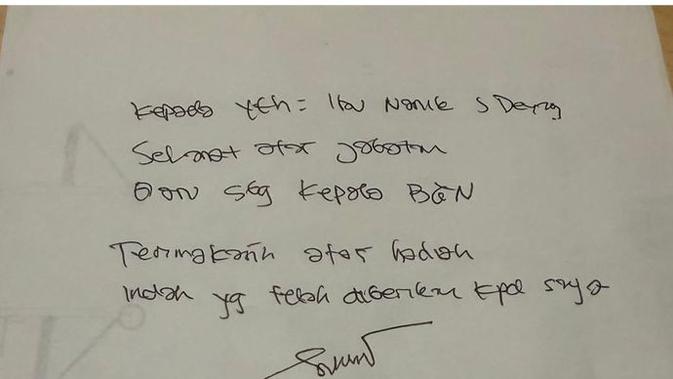 Kepada Yth = Ibu Nanik S Deyang
Selamat atas jabatan
Kepala BGN
Terimakasih atas hadiah
Indah yg telah diberikan kpd saya